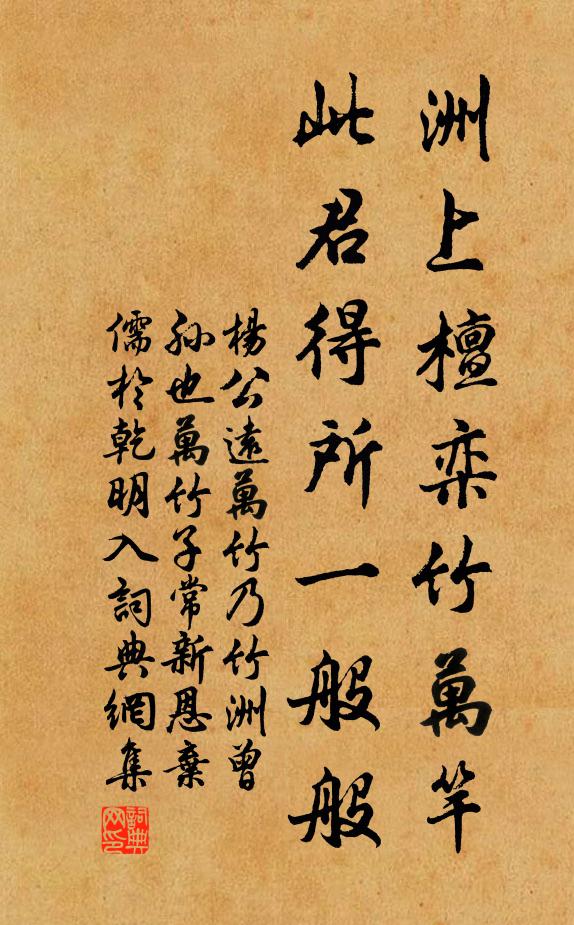 洲上檀栾竹萬竿
此君得所一般般
楊公遠萬竹乃竹洲曾
孫也萬竹子常新恩棄
儒於乾明入詞典網集
詞典
网印